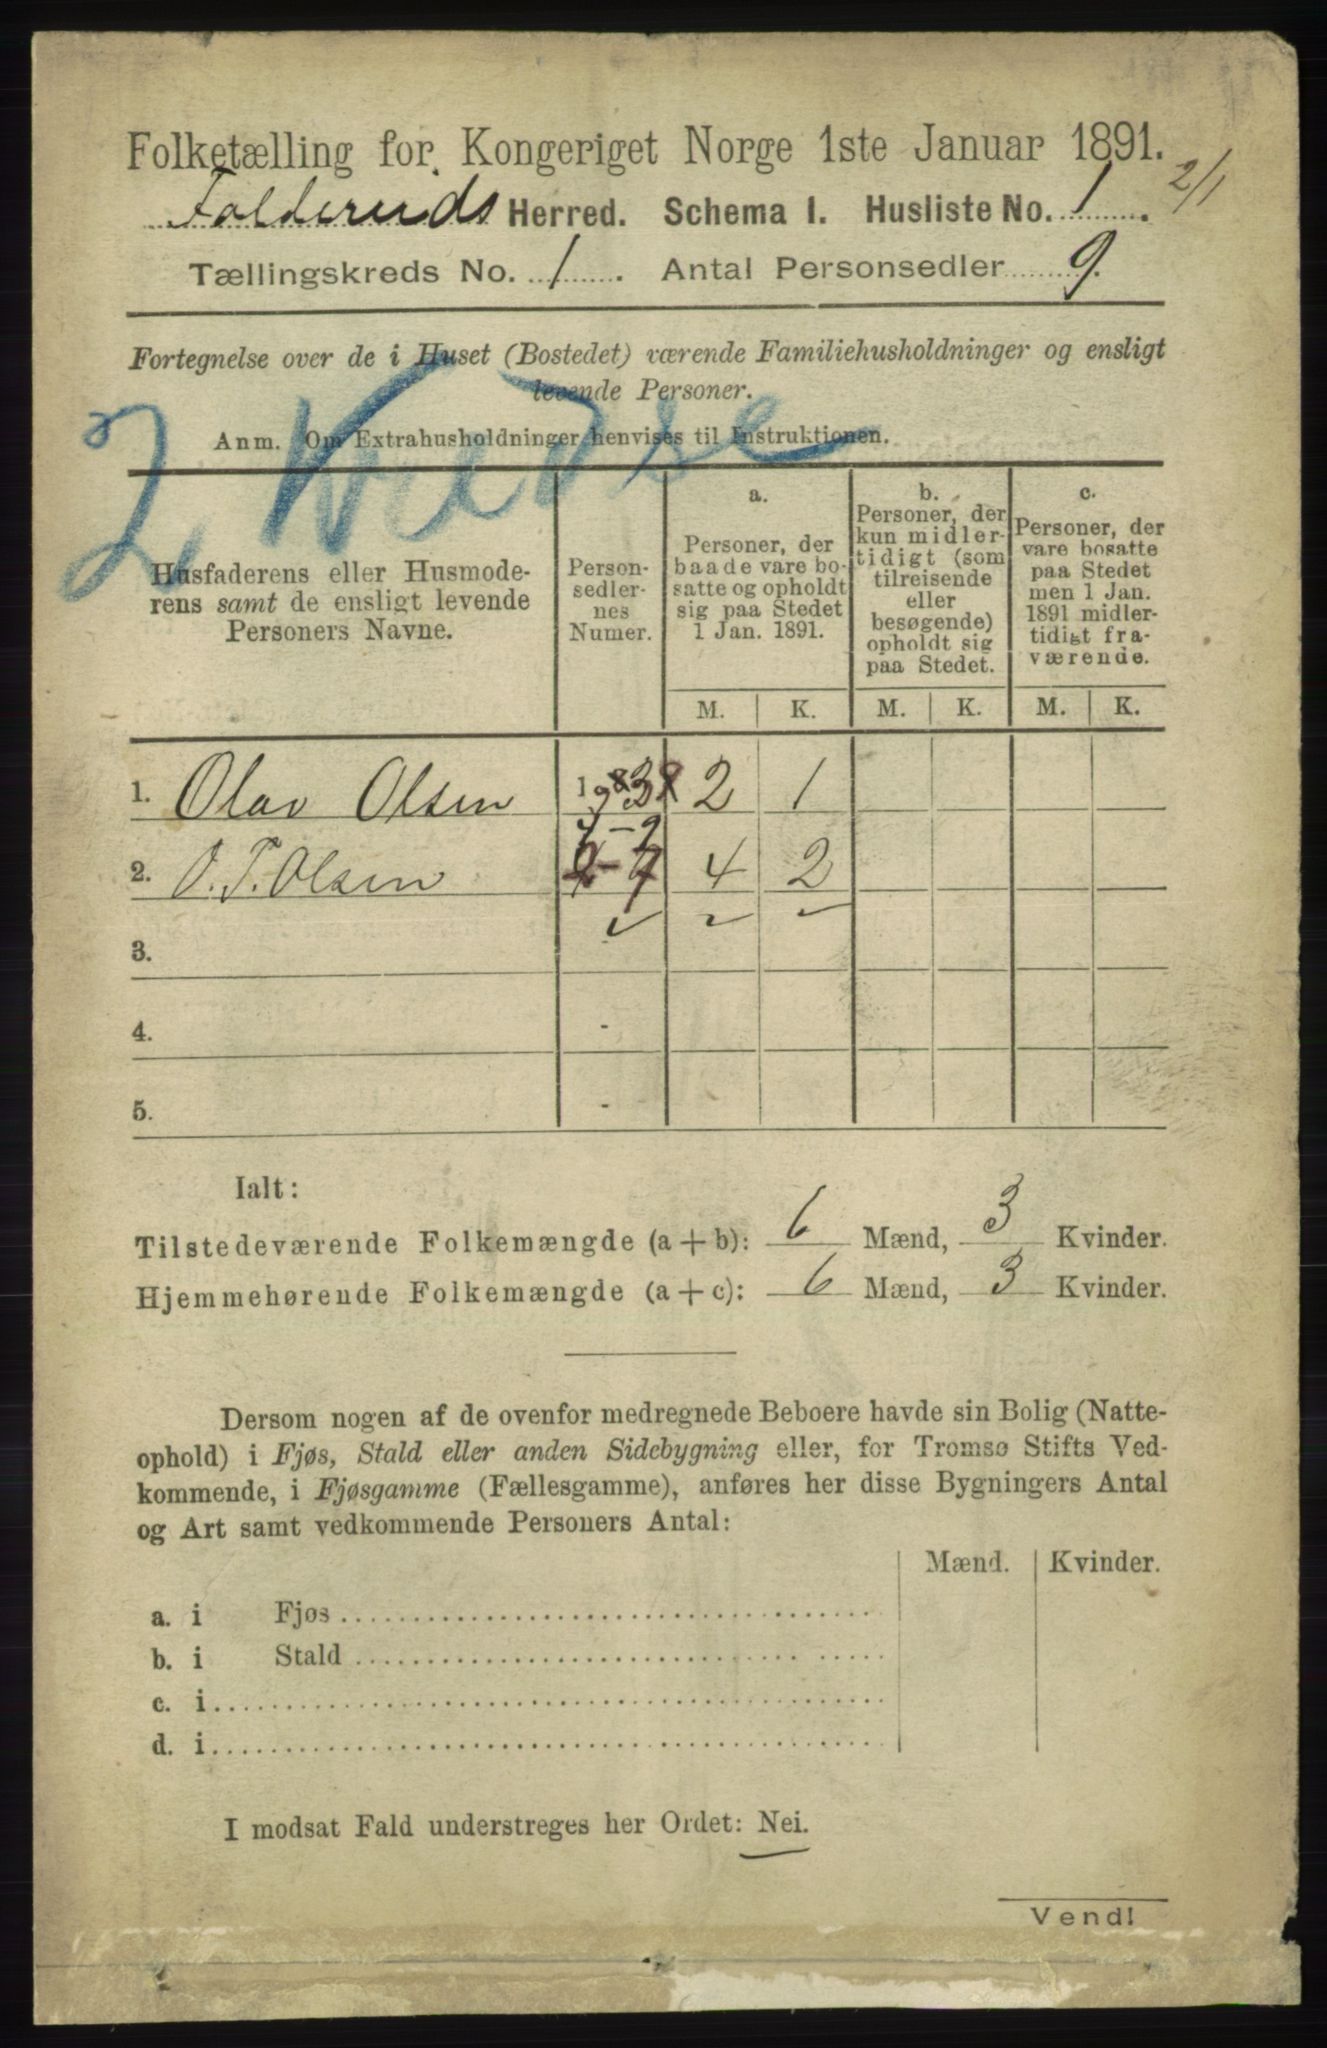 Folketælling for Kongeriget Norge 1ste Januar 1891.
2/1
Foldereids Herred. Schema 1. Husliste No. 1.
Tællingskreds No. 1. Antal Personsedler 9.
Fortegnelse over de i Huset (Bostedet) værende Familiehusholdninger og ensligt
levende Personer.
Anm. Om Extrahusholdninger henvises til Instruktionen.
Husfaderens eller Husmode-
rens samt de ensligt levende
Personers Navne.
Person-
sedler-
nes
Numer.
a.
Personer, der
baade vare bo-
satte og opholdt
sig paa Stedet
1 Jan. 1891.
b.
Personer, der
kun midler-
tidigt (som
tilreisende
eller
besøgende)
opholdt sig
paa Stedet.
c.
Personer, der
vare bosatte
paa Stedet
men 1 Jan.
1891 midler-
tidigt fra-
værende.
M. K. M. K. M. K.
1. Olav Olsen 2 1
2. O. T. Olsen 4 2
3.
4. -
5. -
Ialt:
Tilstedeværende Folkemængde (a + b): 6 Mænd, 3 Kvinder.
Hjemmehørende Folkemængde (a + c): 6 Mænd, 3 Kvinder.
Dersom nogen af de ovenfor medregnede Beboere havde sin Bolig (Natte-
ophold) i Fjøs, Stald eller anden Sidebygning eller, for Tromsø Stifts Ved-
kommende, i Fjøsgamme (Fællesgamme), anføres her disse Bygningers Antal
og Art samt vedkommende Personers Antal:
Mænd. Kvinder.
a. i Fjøs
b. i Stald
c. i
d. i
I modsat Fald understreges her Ordet: Nei.
Vend!